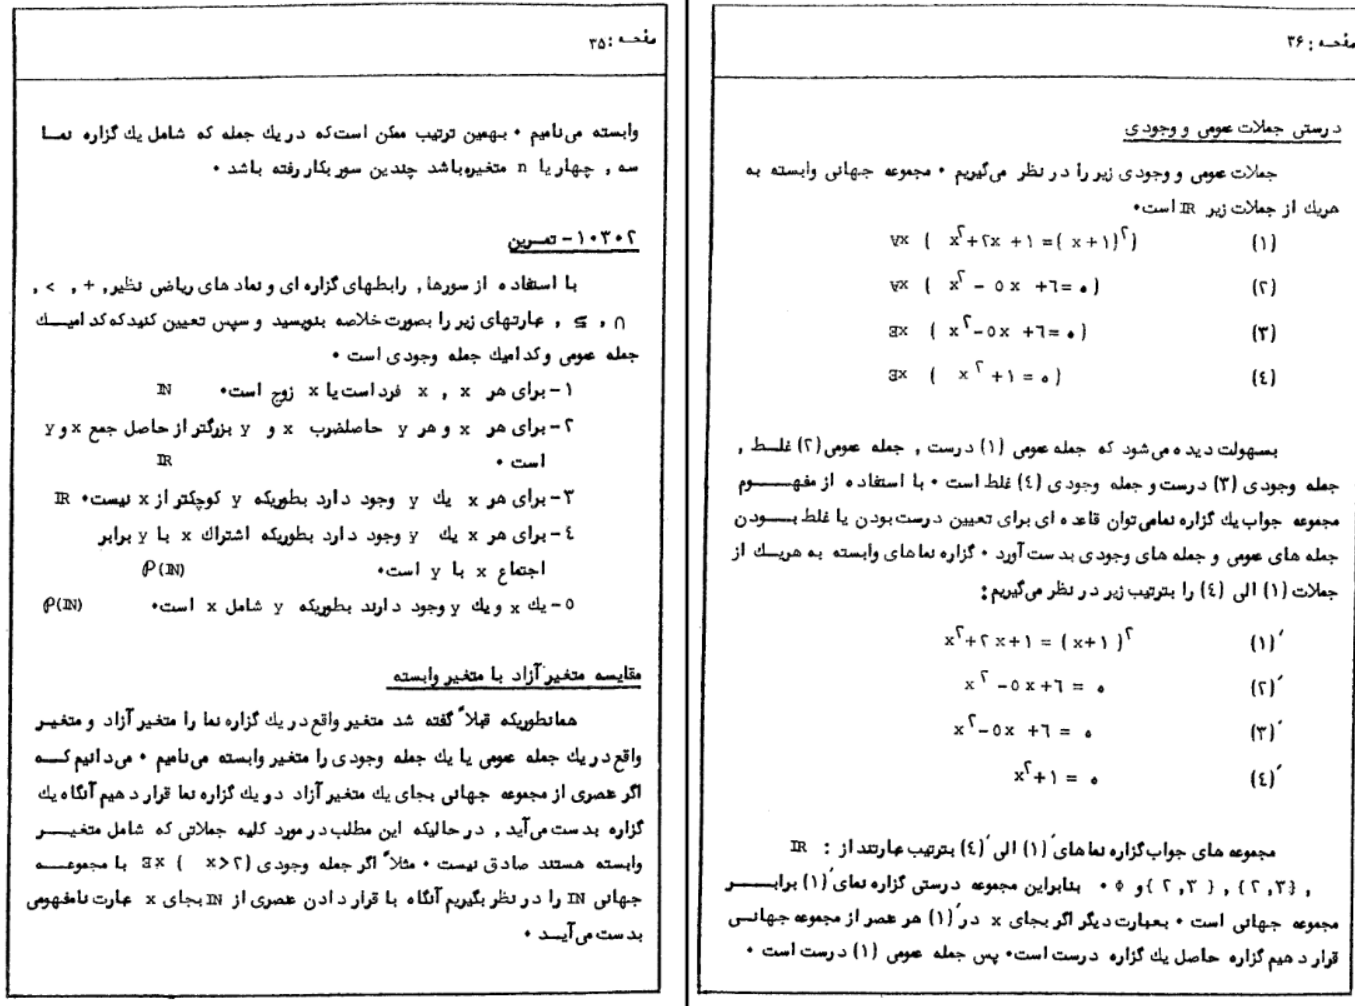 صفحه : ۳۵
وابسته می‌نامیم • بهمین ترتیب ممکن است که در یك جمله که شامل یك گزاره نما
سه , چهار یا n متغیره باشد چندین سور بکار رفته باشد •
۱۰۳۰۲- تمرین
با استفاده از سورها , رابطهای گزاره ای و نماد های ریاضی نظیر, + , < ,
∩ , ⊆ , عبارتهای زیر را بصورت خلاصه بنویسید و سپس تعیین کنید که کدامیك
جمله عمومی و کدامیك جمله وجودی است •
۱- برای هر x , x فرد است یا x زوج است• IN
۲- برای هر x و هر y حاصلضرب x و y بزرگتر از حاصل جمع x و y
است • IR
۳- برای هر x یك y وجود دارد بطوریکه y کوچکتر از x نیست• IR
٤- برای هر x یك y وجود دارد بطوریکه اشتراك x با y برابر
اجتماع x با y است• ℘(IN)
٥- یك x و یك y وجود دارند بطوریکه y شامل x است• ℘(IN)
مقایسه متغیر آزاد با متغیر وابسته
همانطوریکه قبلاً گفته شد متغیر واقع در یك گزاره نما را متغیر آزاد و متغیر
واقع در یك جمله عمومی یا یك جمله وجودی را متغیر وابسته می‌نامیم • می‌دانیم که
اگر عنصری از مجموعه جهانی بجای یك متغیر آزاد در یك گزاره نما قرار دهیم آنگاه یك
گزاره بدست می‌آید , در حالیکه این مطلب در مورد کلیه جملاتی که شامل متغیر
وابسته هستند صادق نیست • مثلاً اگر جمله وجودی ∃x ( x>۲) با مجموعه
جهانی IN را در نظر بگیریم آنگاه با قرار دادن عنصری از IN بجای x عبارت نامفهومی
بدست می‌آید •
صفحه : ۳۶
درستی جملات عمومی و وجودی
جملات عمومی و وجودی زیر را در نظر می‌گیریم • مجموعه جهانی وابسته به
هریك از جملات زیر IR است•
(۱) ∀x ( x²+۲x +۱ =( x+۱)²)
(۲) ∀x ( x² - ٥x +٦=۰)
(۳) ∃x ( x²-٥x +٦=۰)
(٤) ∃x ( x² +۱ =۰)
بسهولت دیده می‌شود که جمله عمومی (۱) درست , جمله عمومی(۲) غلط ,
جمله وجودی (۳) درست و جمله وجودی (٤) غلط است • با استفاده از مفهوم
مجموعه جواب یك گزاره نما می‌توان قاعده ای برای تعیین درست بودن یا غلط بودن
جمله های عمومی و جمله های وجودی بدست آورد • گزاره نماهای وابسته به هریك از
جملات (۱) الی (٤) را بترتیب زیر در نظر می‌گیریم:
(۱)′ x²+۲x+۱ = (x+۱ )²
(۲)′ x² -٥x+٦ = ۰
(۳)′ x²-٥x +٦ = ۰
(٤)′ x²+۱ = ۰
مجموعه های جواب گزاره نماهای (۱)′ الی (٤)′ بترتیب عبارتند از : IR
, {۲,۳} , {۲,۳} و Φ • بنابراین مجموعه درستی گزاره نمای (۱)′ برابر
مجموعه جهانی است • بعبارت دیگر اگر بجای x در (۱)′ هر عنصر از مجموعه جهانی
قرار دهیم گزاره حاصل یك گزاره درست است• پس جمله عمومی (۱) درست است •